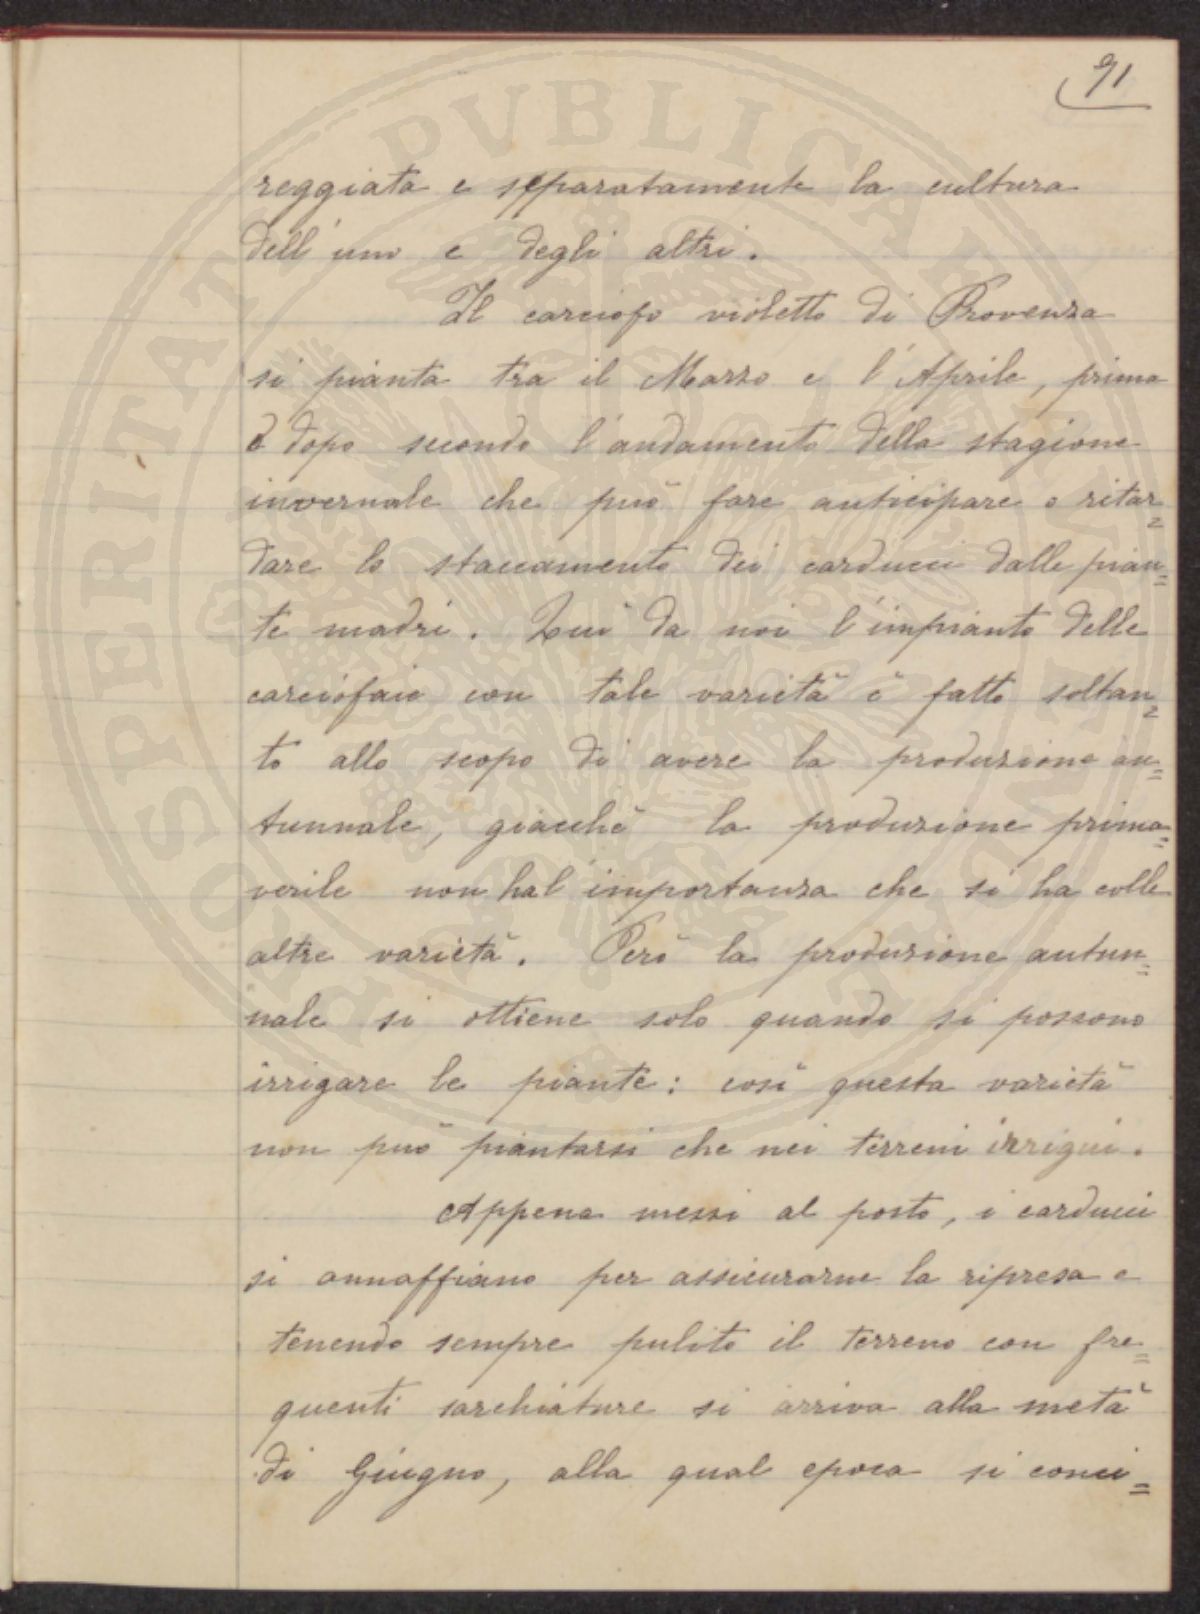 91
reggiata e separatamente la cultura
dell'uno e degli altri.
Il carciofo violetto di Provenza
si pianta tra il Marzo e l'Aprile, prima
o dopo secondo l'andamento della stagione
invernale che può fare anticipare o ritar=
dare lo staccamento dei carducci dalle pian=
te madri. Qui da noi l'impianto delle
carciofaie con tale varietà è fatto soltan=
to allo scopo di avere la produzione au=
tunnale, giacchè la produzione prima=
verile non ha l'importanza che si ha colle
altre varietà. Però la produzione autun=
nale si ottiene solo quando si possono
irrigare le piante: così questa varietà
non può piantarsi che nei terreni irrigui.
Appena messi al posto, i carducci
si annaffiano per assicurarne la ripresa e
tenendo sempre pulito il terreno con fre=
quenti sarchiature si arriva alla metà
di Giugno, alla qual epoca si conci=
PROSPERITATI PVBLICAE